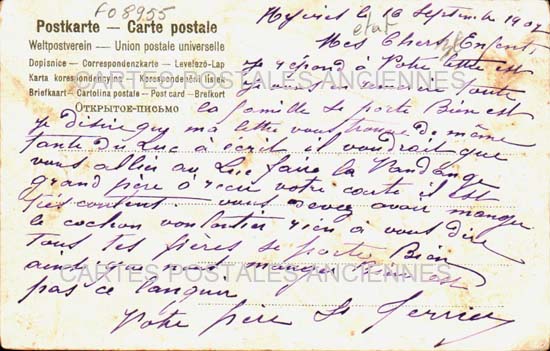 FO8955
Postkarte — Carte postale
Weltpostverein — Union postale universelle
Dopisnice – Correspondenzkarte – Levelező-Lap
Karta korespondencyjna – Korespondenční lístek
Briefkaart – Cartolina postale – Post card – Brefkort
Открытое-письмо
le 16 Septembre 190
etat
Mes Chers Enfents
je répond à votre lettre est
je vous en remercie toute
la famille se porte Bien est
je désire que ma lettre vous trouve de même
tante du Luc à écrit il voudrait que
vous allier au Luc faire la Vandange
grand père à reçu votre carte il est
très content vous devez avoir manger
le cochon rien à vous dire
tous tes frères se porte Bien
ainsi que
pas ce languir
Votre père
CARTES POSTALES ANCIENNES
CARTES POSTALES ANCIENNES